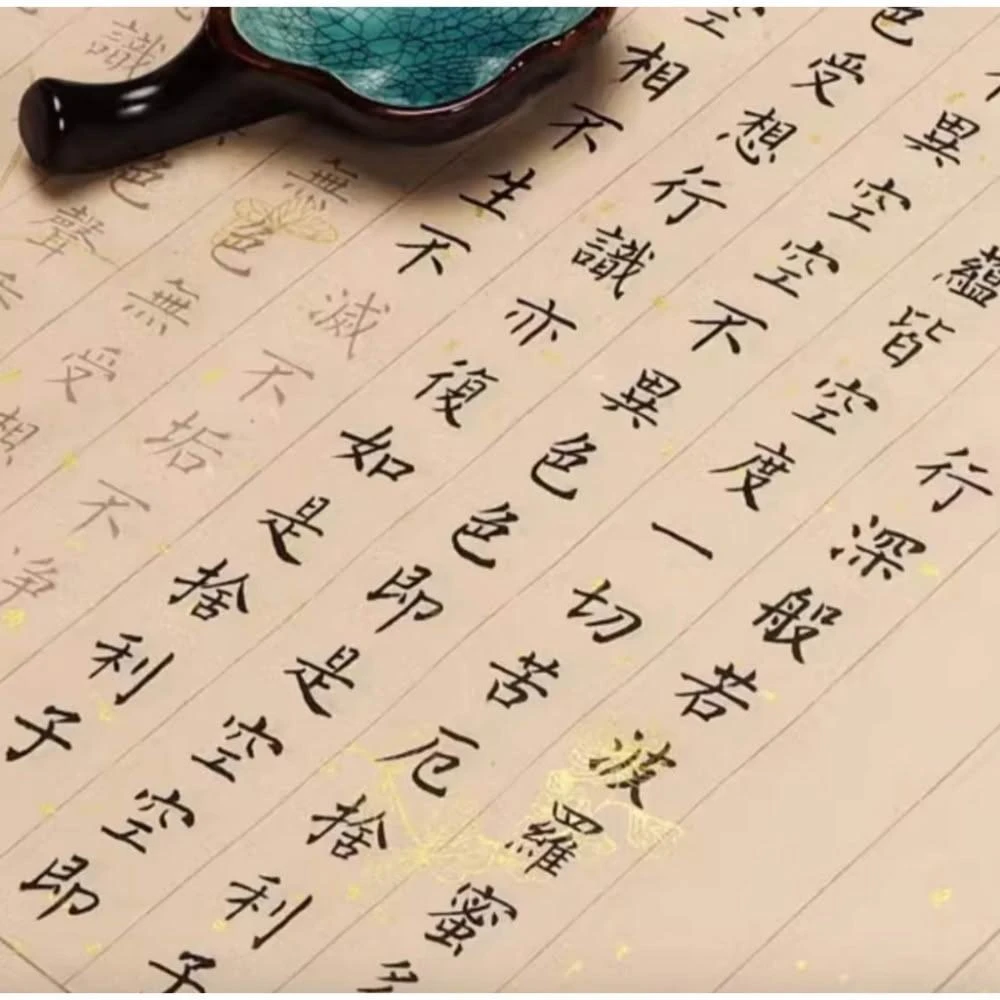 行深般若波羅蜜多
蘊皆空度一切苦厄捨利子
不異空空不異色色即是空空即
色受想行識亦復如是捨利子
空相不生不滅不垢不净
無色無受想
色聲
識